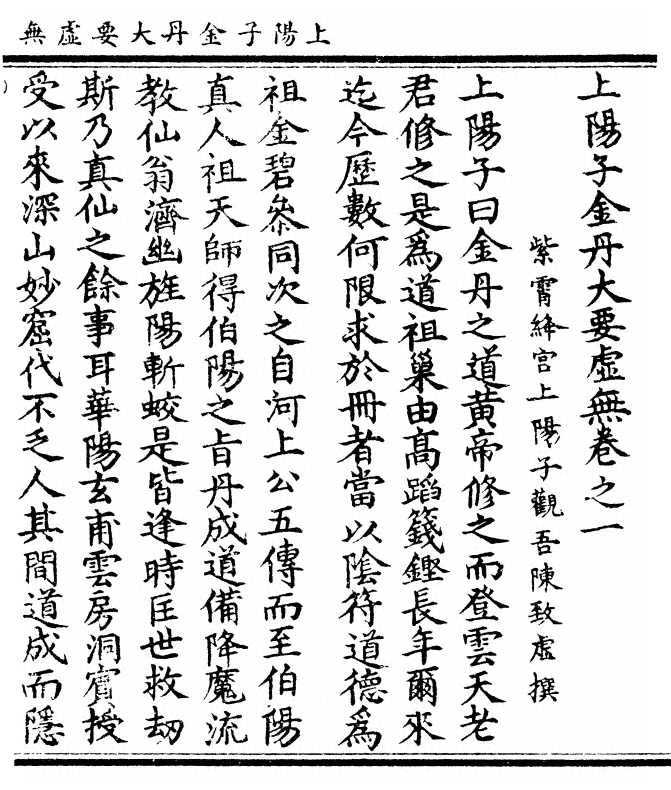 上陽子金丹大要虛無
上陽子金丹大要虛無卷之一
紫霄絳宮上陽子觀吾陳致虛撰
上陽子曰金丹之道黃帝修之而登雲天老
君修之是爲道祖巢由高蹈籛鏗長年爾來
迄今歷數何限求於冊者當以陰符道德爲
祖金碧叅同次之自河上公五傳而至伯陽
真人祖天師得伯陽之旨丹成道備降魔流
教仙翁濟幽旌陽斬蛟是皆逢時匡世救劫
斯乃真仙之餘事耳華陽玄甫雲房洞賓授
受以來深山妙窟代不乏人其間道成而隱